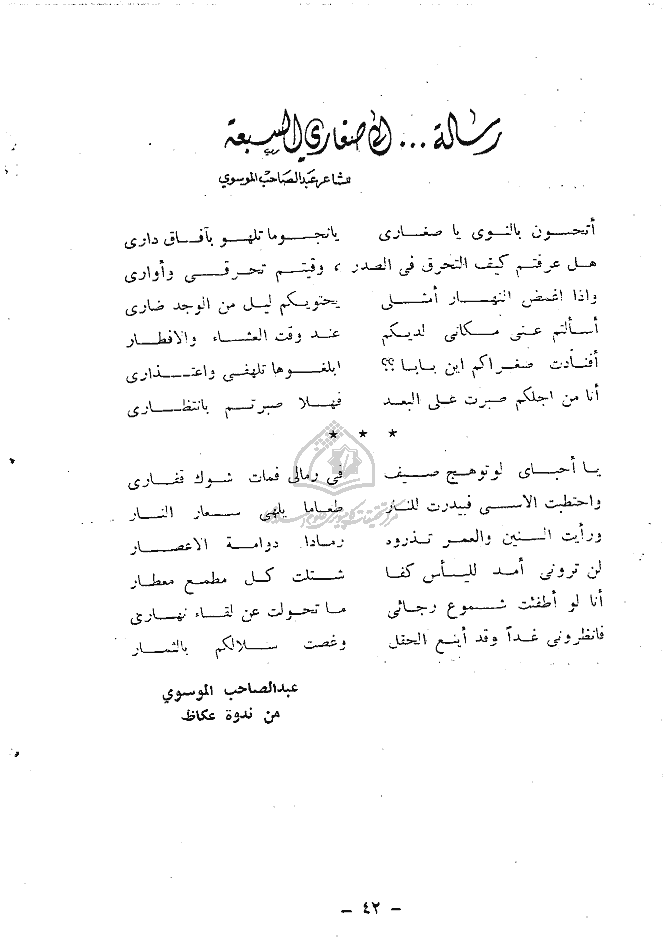 رسالة ... الى صغاري السبعة
للشاعر عبدالصاحب الموسوي
أتحسون بالنوى يا صغارى يانجوما تلهو بآفاق دارى
هل عرفتم كيف التحرق فى الصدر ، وقيتم تحرقى وأوارى
واذا اغمض النهار أمثلى يحتويكم ليل من الوجد ضارى
أسألتم عنى مكانى لديكم عند وقت العشاء والافطار
أفنادت صغراكم اين بابا ؟؟ ابلغوها تلهفى واعتذارى
أنا من اجلكم صبرت على البعد فهلا صبرتم بانتظارى
* * *
يا أحباى لو توهج صيف فى رمالى فمات شوك قفارى
واحتطبت الاسى فبدرت للنار طعاما يلهى سعار النار
ورأيت السنين والعمر تذروه رمادا دوامة الاعصار
لن ترونى أمد لليأس كفا شتلت كل مطمع معطار
أنا لو أطفئت شموع رجائى ما تحولت عن لقاء نهارى
فانظرونى غداً وقد أينع الحقل وغصت سلالكم بالثمار
عبدالصاحب الموسوي
من ندوة عكاظ
- ٤٢ -